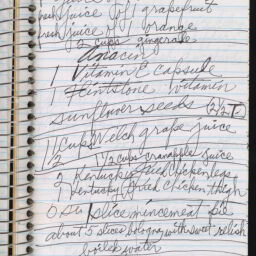 fresh juice of 1 grapefruit
fresh juice of 1 orange
2 cups gingerale
Anacin
1 Vitamin E capsule
1 Flintstone Vitamin
sunflower seeds (2 1/2 T)
1 1/2 cups Welch grape juice
1 1/2 cups cranapple juice
2 Kentucky fried chicken legs
Kentucky fried chicken thigh
slice mincemeat pie
about 5 slices bologna with sweet relish
boiled water